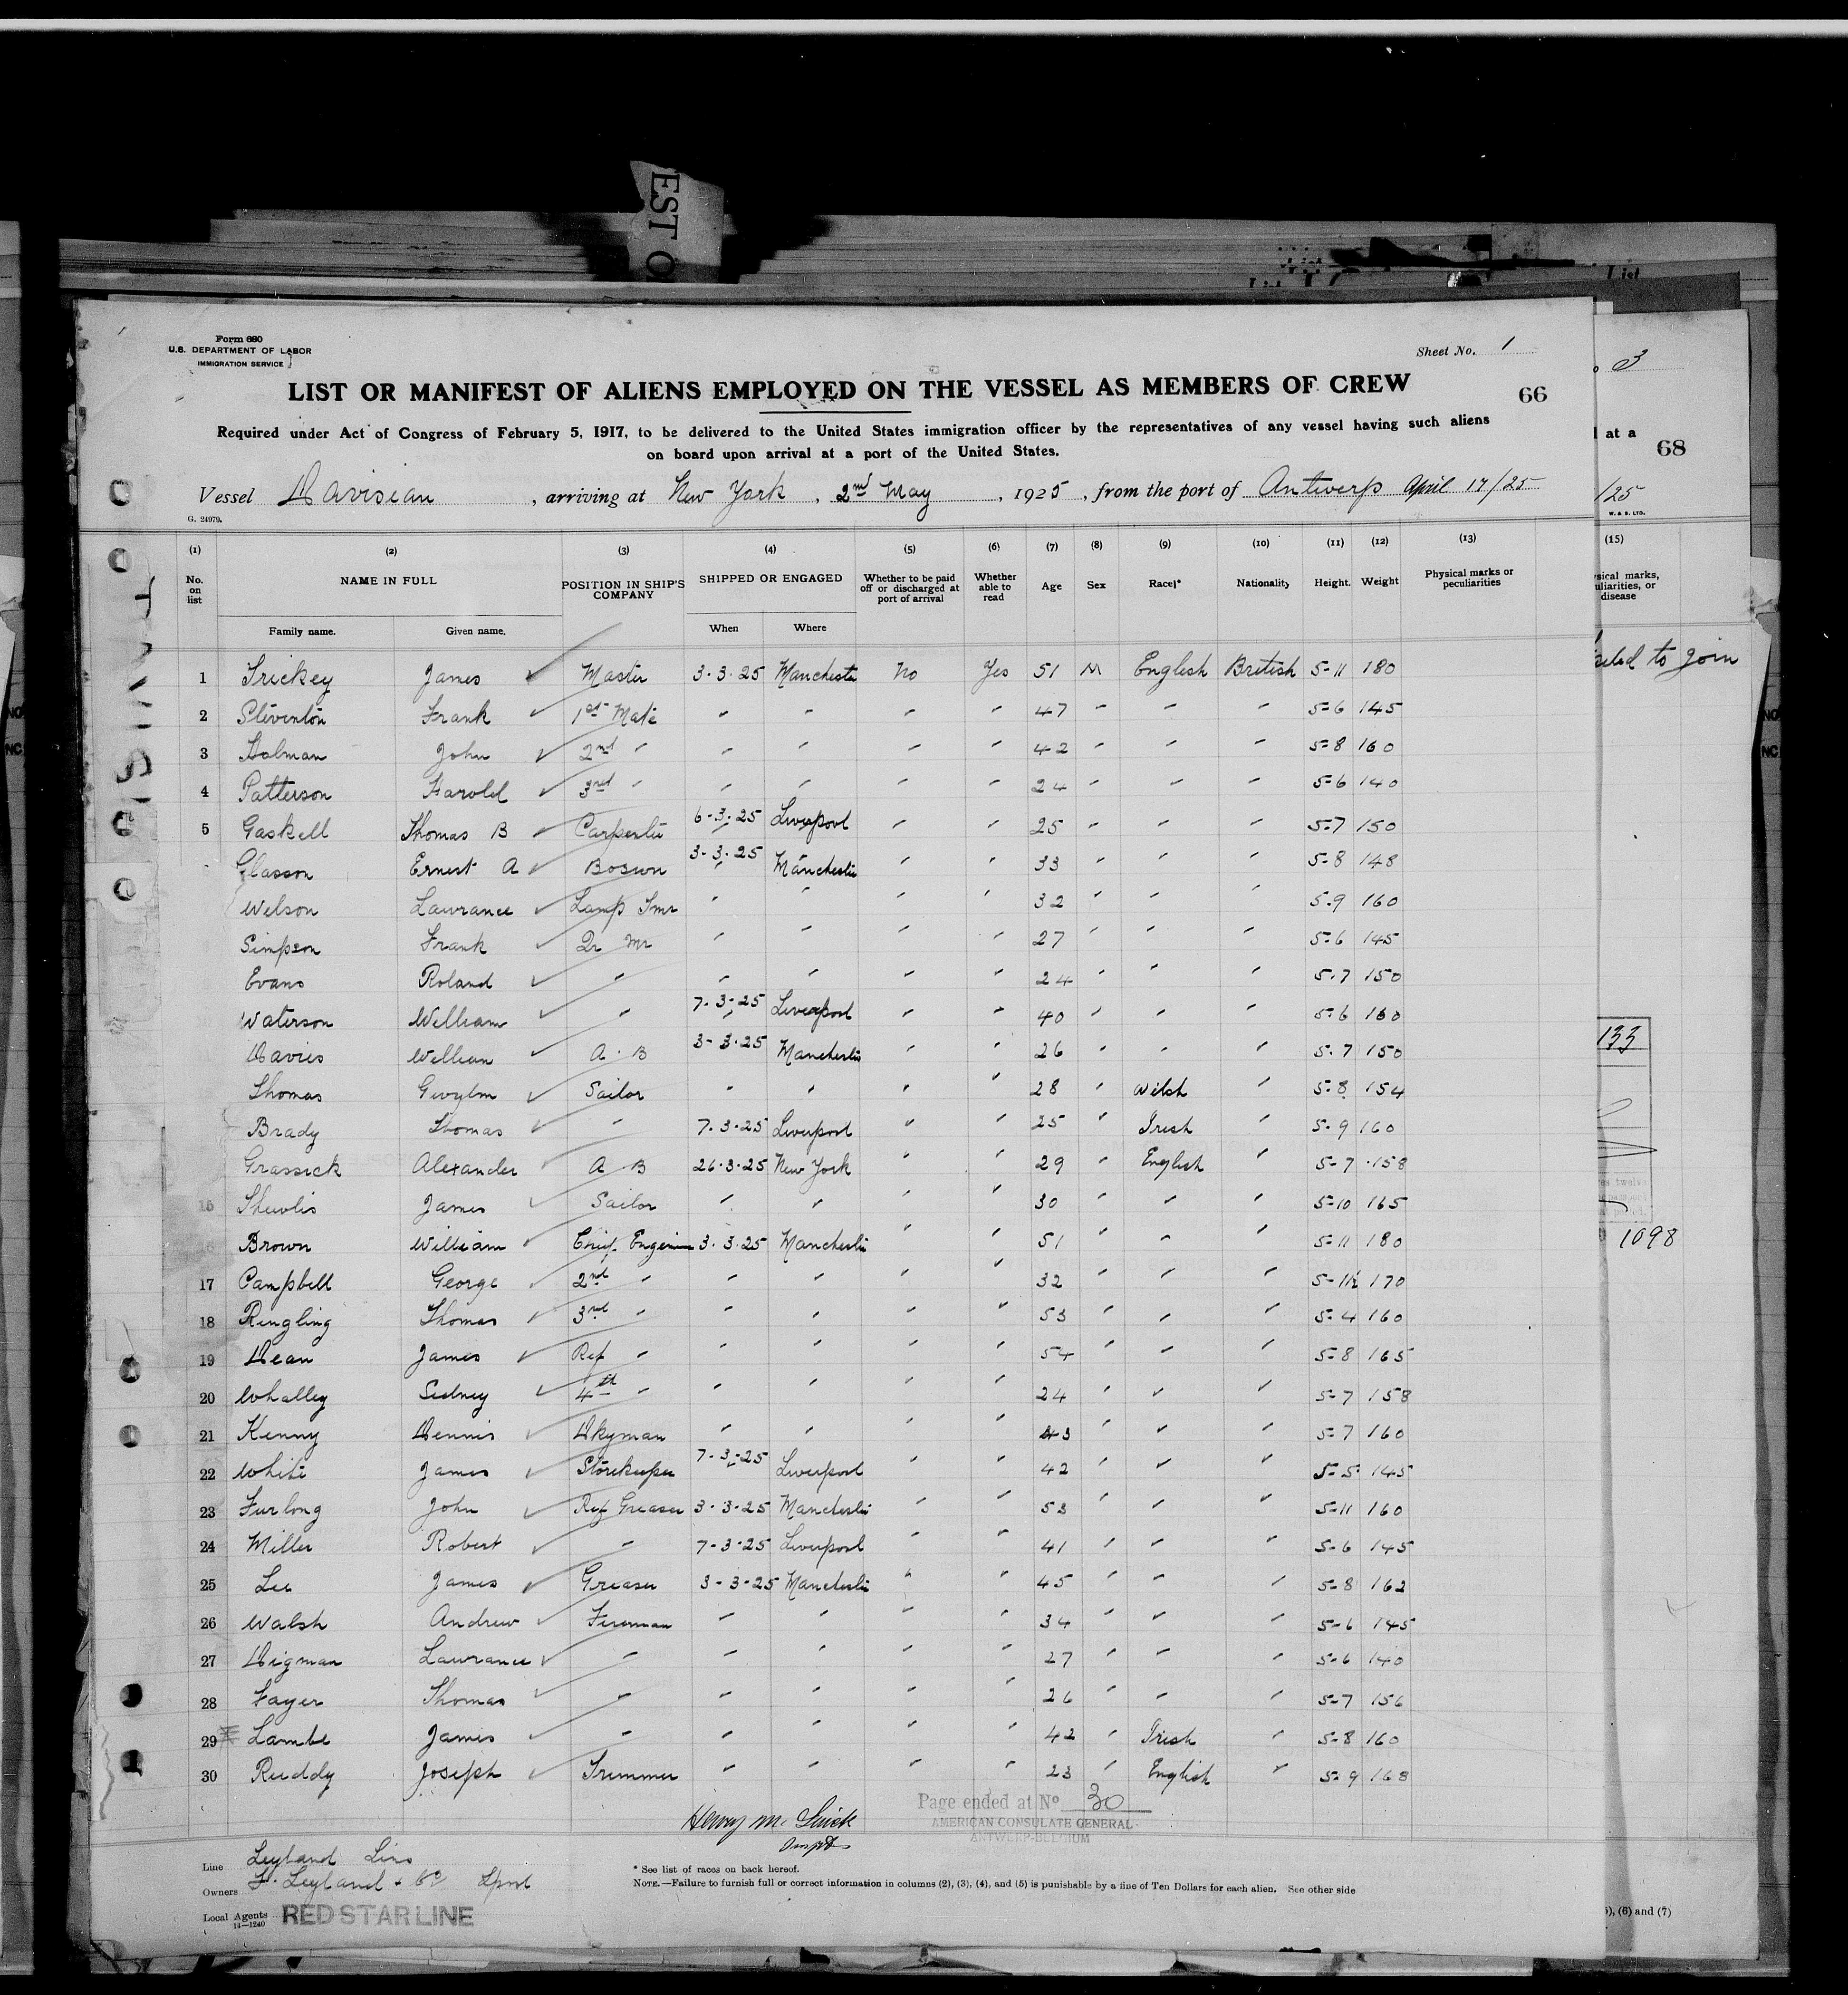 EST O
List
List
List
Form 680
U.S. DEPARTMENT OF LABOR
IMMIGRATION SERVICE
Sheet No. 1
LIST OR MANIFEST OF ALIENS EMPLOYED ON THE VESSEL AS MEMBERS OF CREW
66
Required under Act of Congress of February 5, 1917, to be delivered to the United States immigration officer by the representatives of any vessel having such aliens
on board upon arrival at a port of the United States.
Vessel Davisian, arriving at New York, 2nd May, 1925, from the port of Antwerp April 17/25
G. 24979.
(1) (2) (3) (4) (5) (6) (7) (8) (9) (10) (11) (12) (13)
No. on list NAME IN FULL POSITION IN SHIP'S COMPANY SHIPPED OR ENGAGED Whether to be paid off or discharged at port of arrival Whether able to read Age Sex Race* Nationality Height. Weight Physical marks or peculiarities
Family name. Given name. When Where
1 Trickey James Master 3-3-25 Manchester No Yes 51 M English British 5-11 180
2 Steventon Frank 1st Mate " " " " 47 " " " 5-6 145
3 Holman John 2nd " " " " " 42 " " " 5-8 160
4 Patterson Harold 3rd " " " " " 24 " " " 5-6 140
5 Gaskell Thomas B Carpenter 6-3-25 Liverpool " " 25 " " " 5-7 150
Glasson Ernest A Bosun 3-3-25 Manchester " " 33 " " " 5-8 148
Wilson Lawrance Lamp Tmr " " " " 32 " " " 5-9 160
Simpson Frank Qr Mr " " " " 27 " " " 5-6 145
Evans Roland " " " " " 24 " " " 5-7 150
Waterson William " 7-3-25 Liverpool " " 40 " " " 5-6 160
Davies William A.B 3-3-25 Manchester " " 26 " " " 5-7 150
Thomas Gwylm Sailor " " " " 28 " Welsh " 5-8 154
Brady Thomas " 7-3-25 Liverpool " " 25 " Irish " 5-9 160
Grassick Alexander A B 26-3-25 New York " " 29 " English " 5-7 158
15 Thewlis James Sailor " " " " 30 " " " 5-10 165
16 Brown William Chief Engineer 3-3-25 Manchester " " 51 " " " 5-11 180
17 Campbell George 2nd " " " " " 32 " " " 5-11½ 170
18 Ringling Thomas 3rd " " " " " 53 " " " 5-4 160
19 Dean James Ref " " " " " 54 " " " 5-8 165
20 Whalley Sidney 4th " " " " " 24 " " " 5-7 158
21 Kenny Dennis Dkyman " " " " 43 " " " 5-7 160
22 White James Storekeeper 7-3-25 Liverpool " " 42 " " " 5-5 145
23 Furlong John Ref Greaser 3-3-25 Manchester " " 53 " " " 5-11 160
24 Miller Robert " 7-3-25 Liverpool " " 41 " " " 5-6 145
25 Lee James Greaser 3-3-25 Manchester " " 45 " " " 5-8 162
26 Walsh Andrew Fireman " " " " 34 " " " 5-6 145
27 Digman Lawrance " " " " " 27 " " " 5-6 140
28 Fayer Thomas " " " " " 26 " " " 5-7 156
29 Lambe James " " " " " 42 " Irish " 5-8 160
30 Ruddy Joseph Trimmer " " " " 23 " English " 5-9 168
Page ended at No 30
AMERICAN CONSULATE GENERAL
ANTWERP-BELGIUM
Line Leyland Line
Owners F. Leyland & Co Lpool
Local Agents RED STAR LINE
14-1240
* See list of races on back hereof.
NOTE.—Failure to furnish full or correct information in columns (2), (3), (4), and (5) is punishable by a fine of Ten Dollars for each alien. See other side
3
at a 68
/25
W. & S. LTD.
(15)
marks,
disease
to join
133
1098
(6) and (7)